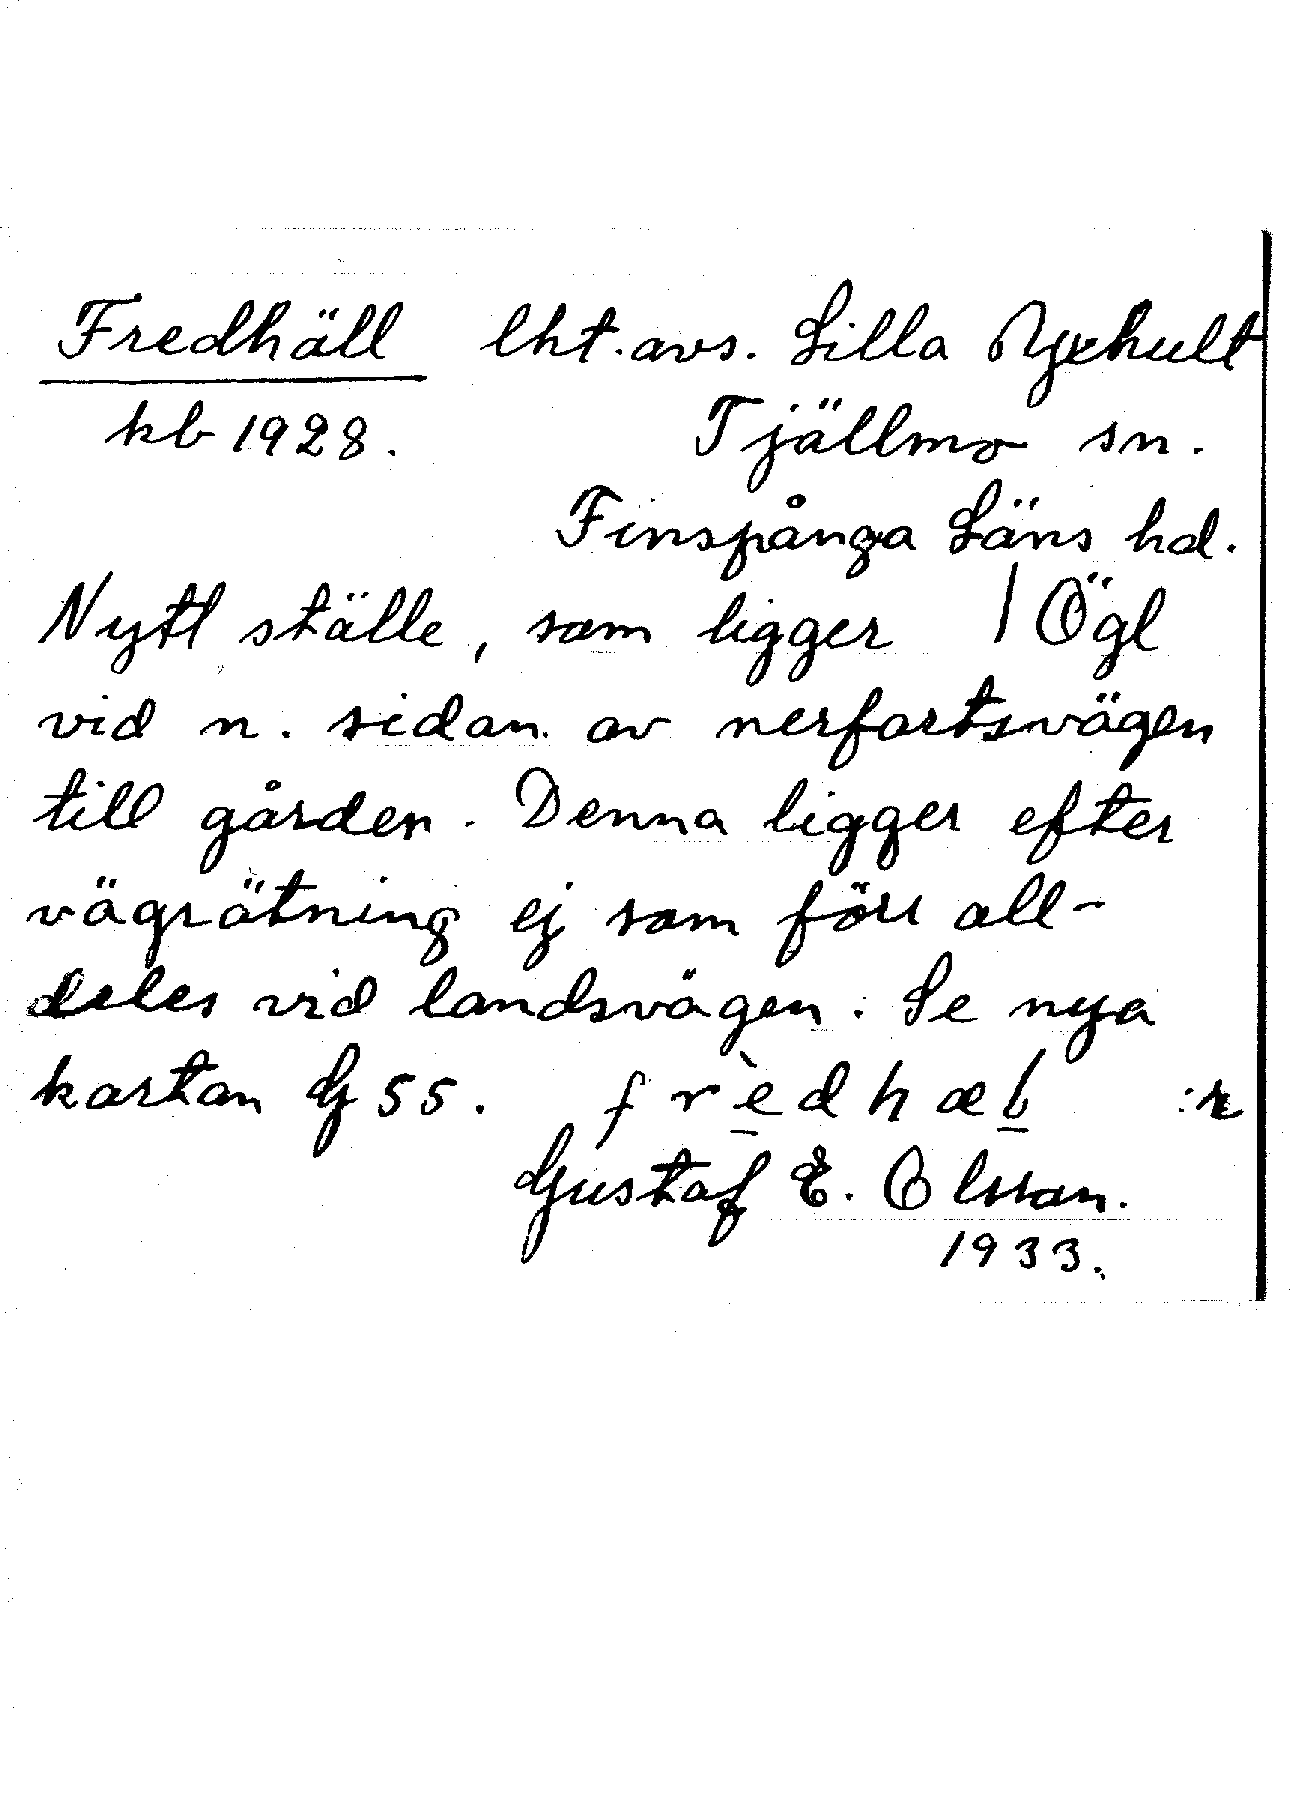 Fredhäll lht. avs. Lilla Yxhult
kb 1928. Tjällmo sn.
Finspånga Läns hd.
Nytt ställe, som ligger | Ögl
vid n. sidan av nerfartsvägen
till gården. Denna ligger efter
vägrätning ej som förr all-
deles vid landsvägen. Se nya
kartan G 55. frèdhæł :r
Gustaf E. Olsson.
1933.